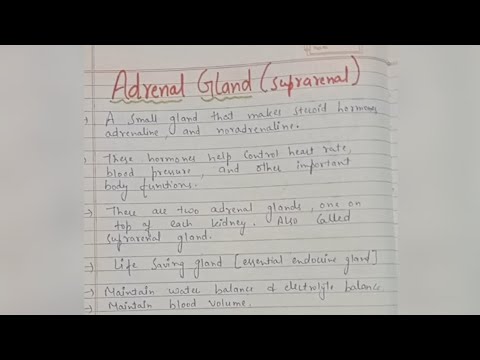 Adrenal Gland (suprarenal)
→ A small gland that makes steroid hormones,
adrenaline, and noradrenaline.
→ These hormones help control heart rate,
blood pressure, and other important
body functions.
→ There are two adrenal glands, one on
top of each kidney. Also Called
suprarenal gland.
→ Life Saving gland [essential endocrine gland]
→ Maintain water balance & electrolyte balance.
→ Maintain blood volume.